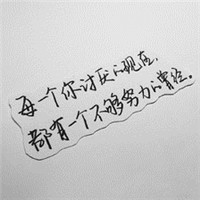 每一个你讨厌的现在，
都有一个不够努力的曾经。